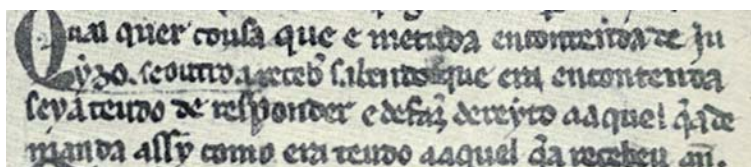 Qual quer cousa que e metuda encontenda de Ju
yzo. se outro a receb̃ sabendo que era encontenda
seya teudo de responder e de faz̃ dereyto aaquel q̃a de
manda assy como era teudo aaquel q̃a recebeu